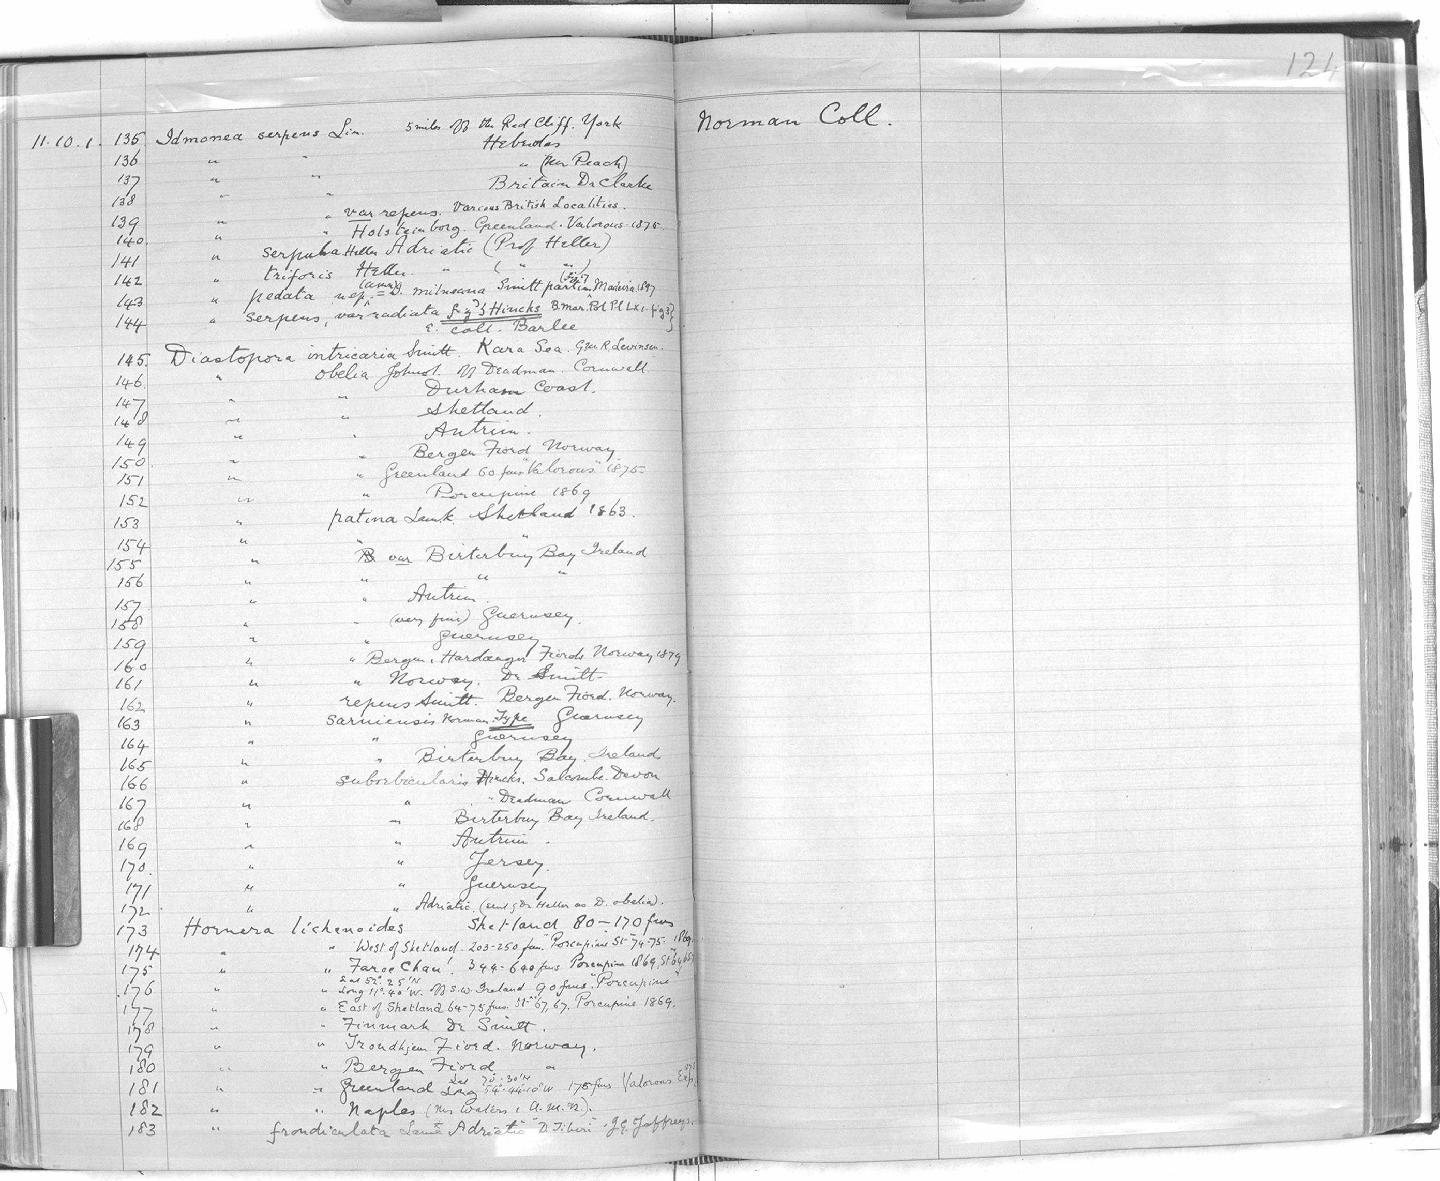 124
11.10.1. 135 Idmonea serpens Lin. 5 miles off the Red Cliff. York
Norman Coll.
136 " " Hebrides
137 " " " (Mr Peach)
138 " " Britain Dr Clarke
139 " " var repens. Various British Localities.
140 " " Holsteinborg. Greenland. Valorous. 1875.
141 " serpula Heller Adriatic (Prof Heller)
142 " triforis Heller. " ( " " )
143 " pedata = D. milneana Smitt partim Madeira 1897
144 " serpens, var radiata fig'd Hincks B. mar. Pol Pl LXI. fig 3
coll. Barlee
145. Diastopora intricaria Smitt. Kara Sea. G.M.R. Levinsen.
146 " obelia Johnst. off Deadman. Cornwall
147 " " Durham Coast.
148 " " Shetland.
149 " " Antrim.
150 " " Bergen Fiord Norway
151 " " Greenland 60 fms "Valorous" 1875
152 " " Porcupine 1869
153 " patina Lamk. Shetland 1863.
154 " " "
155 " B var Birterbuy Bay Ireland
156 " " " "
157 " " Antrim
158 " " (very fine) Guernsey.
159 " " Guernsey
160 " " Bergen & Hardanger Fiords Norway 1879
161 " " Norway. Dr Smitt
162 " repens Smitt. Bergen Fiord. Norway.
163 " sarniensis Norman. Type Guernsey
164 " " Guernsey
165 " " Birterbuy Bay. Ireland
166 " suborbicularis Hincks. Salcombe. Devon
167 " " " Deadman Cornwall
168 " " Birterbuy Bay Ireland.
169 " " Antrim.
170. " " Jersey.
171 " " Guernsey
172 " " Adriatic. (sent by Dr Heller as D. obelia).
173 Hornera lichenoides Shetland 80-170 fms
174 " " West of Shetland. 203-250 fms "Porcupine St" 74-75. 1869.
175 " " Faroe Chan'. 344-640 fms Porcupine 1869. St
176 " " Lat 52°. 25' N Long 11°. 40' W. off S.W. Ireland 90 fms. "Porcupine"
177 " " East of Shetland 64-75 fms. St 67, Porcupine 1869.
178 " " Finmark Dr Smitt.
179 " " Trondhjem Fiord. Norway.
180 " " Bergen Fiord "
181 " " Greenland Lat 70°. 30' N Long 54°. W 175 fms Valorous Exp.
182 " " Naples (Mr Waters & A.M.N.).
183 " frondiculata Lamx Adriatic "D. Tiberi" J.G. Jeffreys.